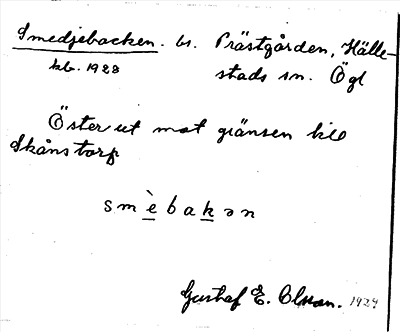 Smedjebacken. bs. Prästgården, Hälle-
kb. 1928 stads sn. Ögl
Öster ut mot gränsen till
Skånstorp
smèbakən
Gustaf E. Olsson. 1929